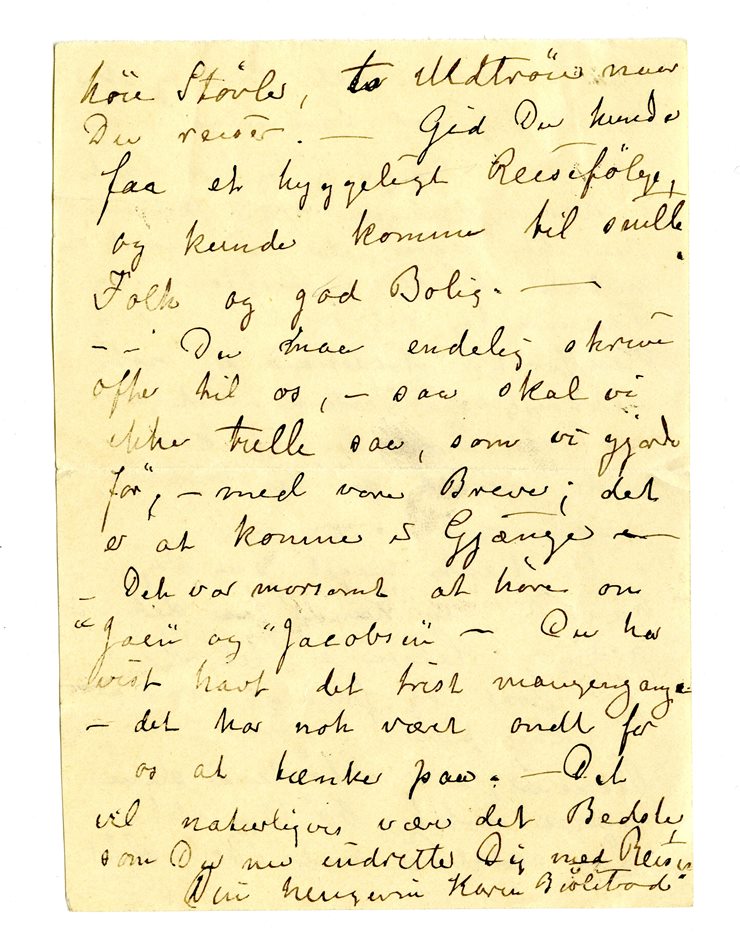 höie Støvler, to Uldtröier naar
Du reiser. — Gid Du kunde
faa et hyggeligt Reisefölge,
og kunde komme til snille
Folk og god Bolig. —
— — Du maa endelig skrive
ofte til os, — saa skal vi
ikke tulle saa, som vi gjorde
för, — med vore Breve; det
er at komme i Gjænge —
— Det var morsomt at höre om
"Jaen" og "Jacobsen" — Du har
vist havt det trist mangengang
— det har nok været ondt for
os at tænke paa. — Det
vil naturligvis være det Bedste,
som Du nu indretter Dig med Reisen
Din hengivne Karen Bjölstad